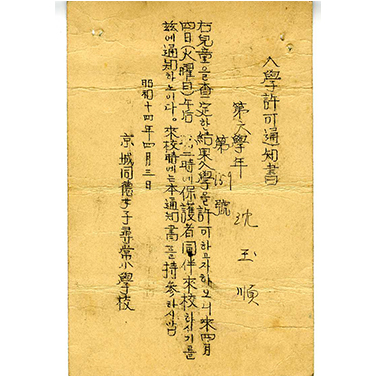 入學許可通知書
第 學年
第159號 沈玉順
右兒童을査定한結果入學을許可하고자하오니來四月
四日(火曜日)午后 二時에保護者同伴來校하시기를
玆에通知하나이다。來校時에는本通知書를持參하시압
昭和十四年四月三日
京城同德女子尋常小學校